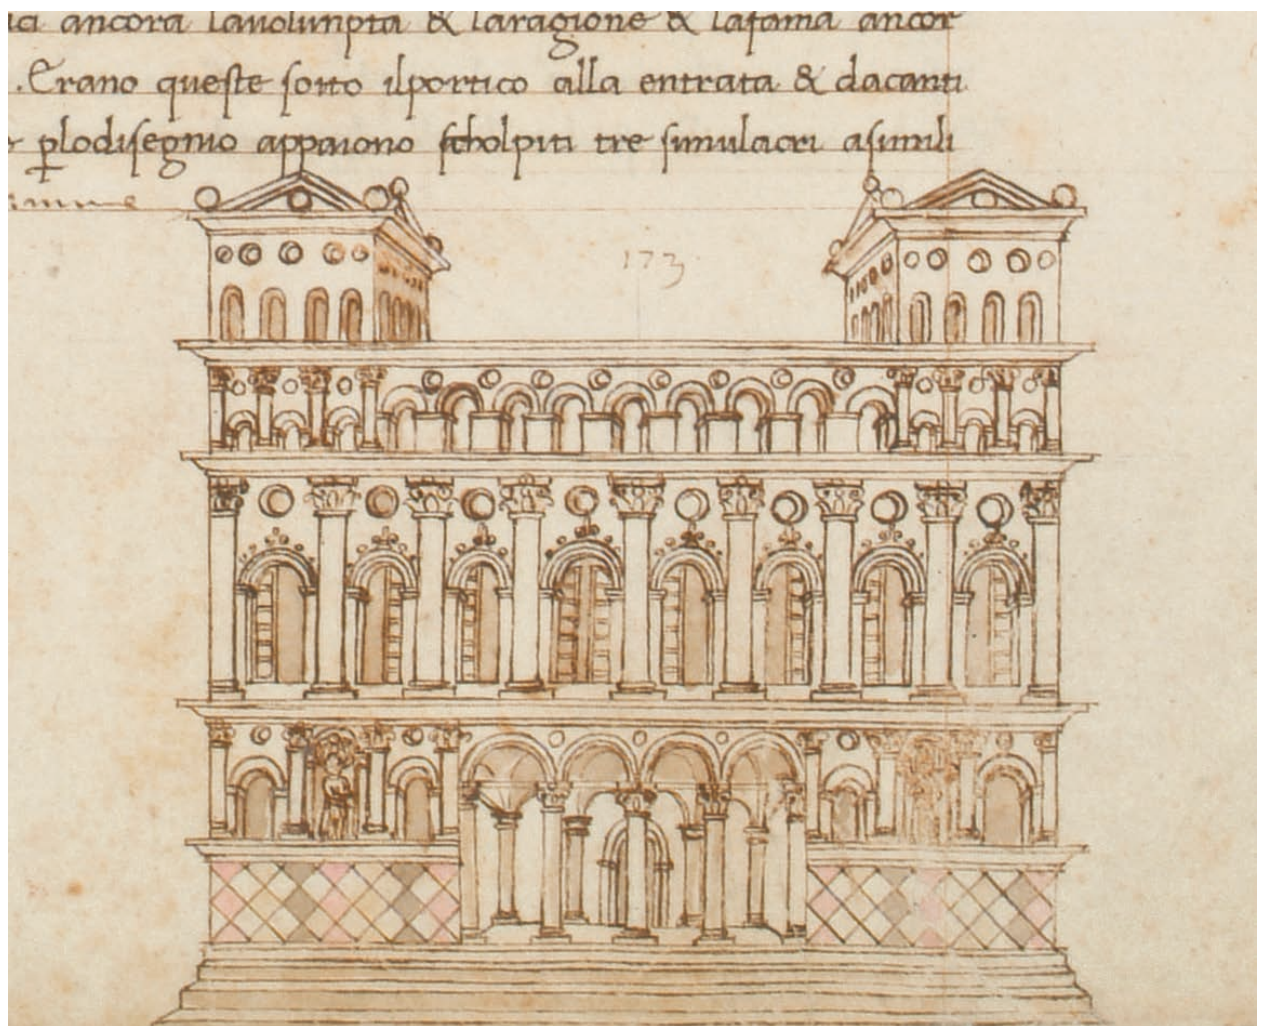 ancora lauolunpta & laragione & lafama ancor
. Erano queste sotto ilportico alla entrata & dacanti
plodisegnio appaiono scholpiti tre simulacri asimili
173